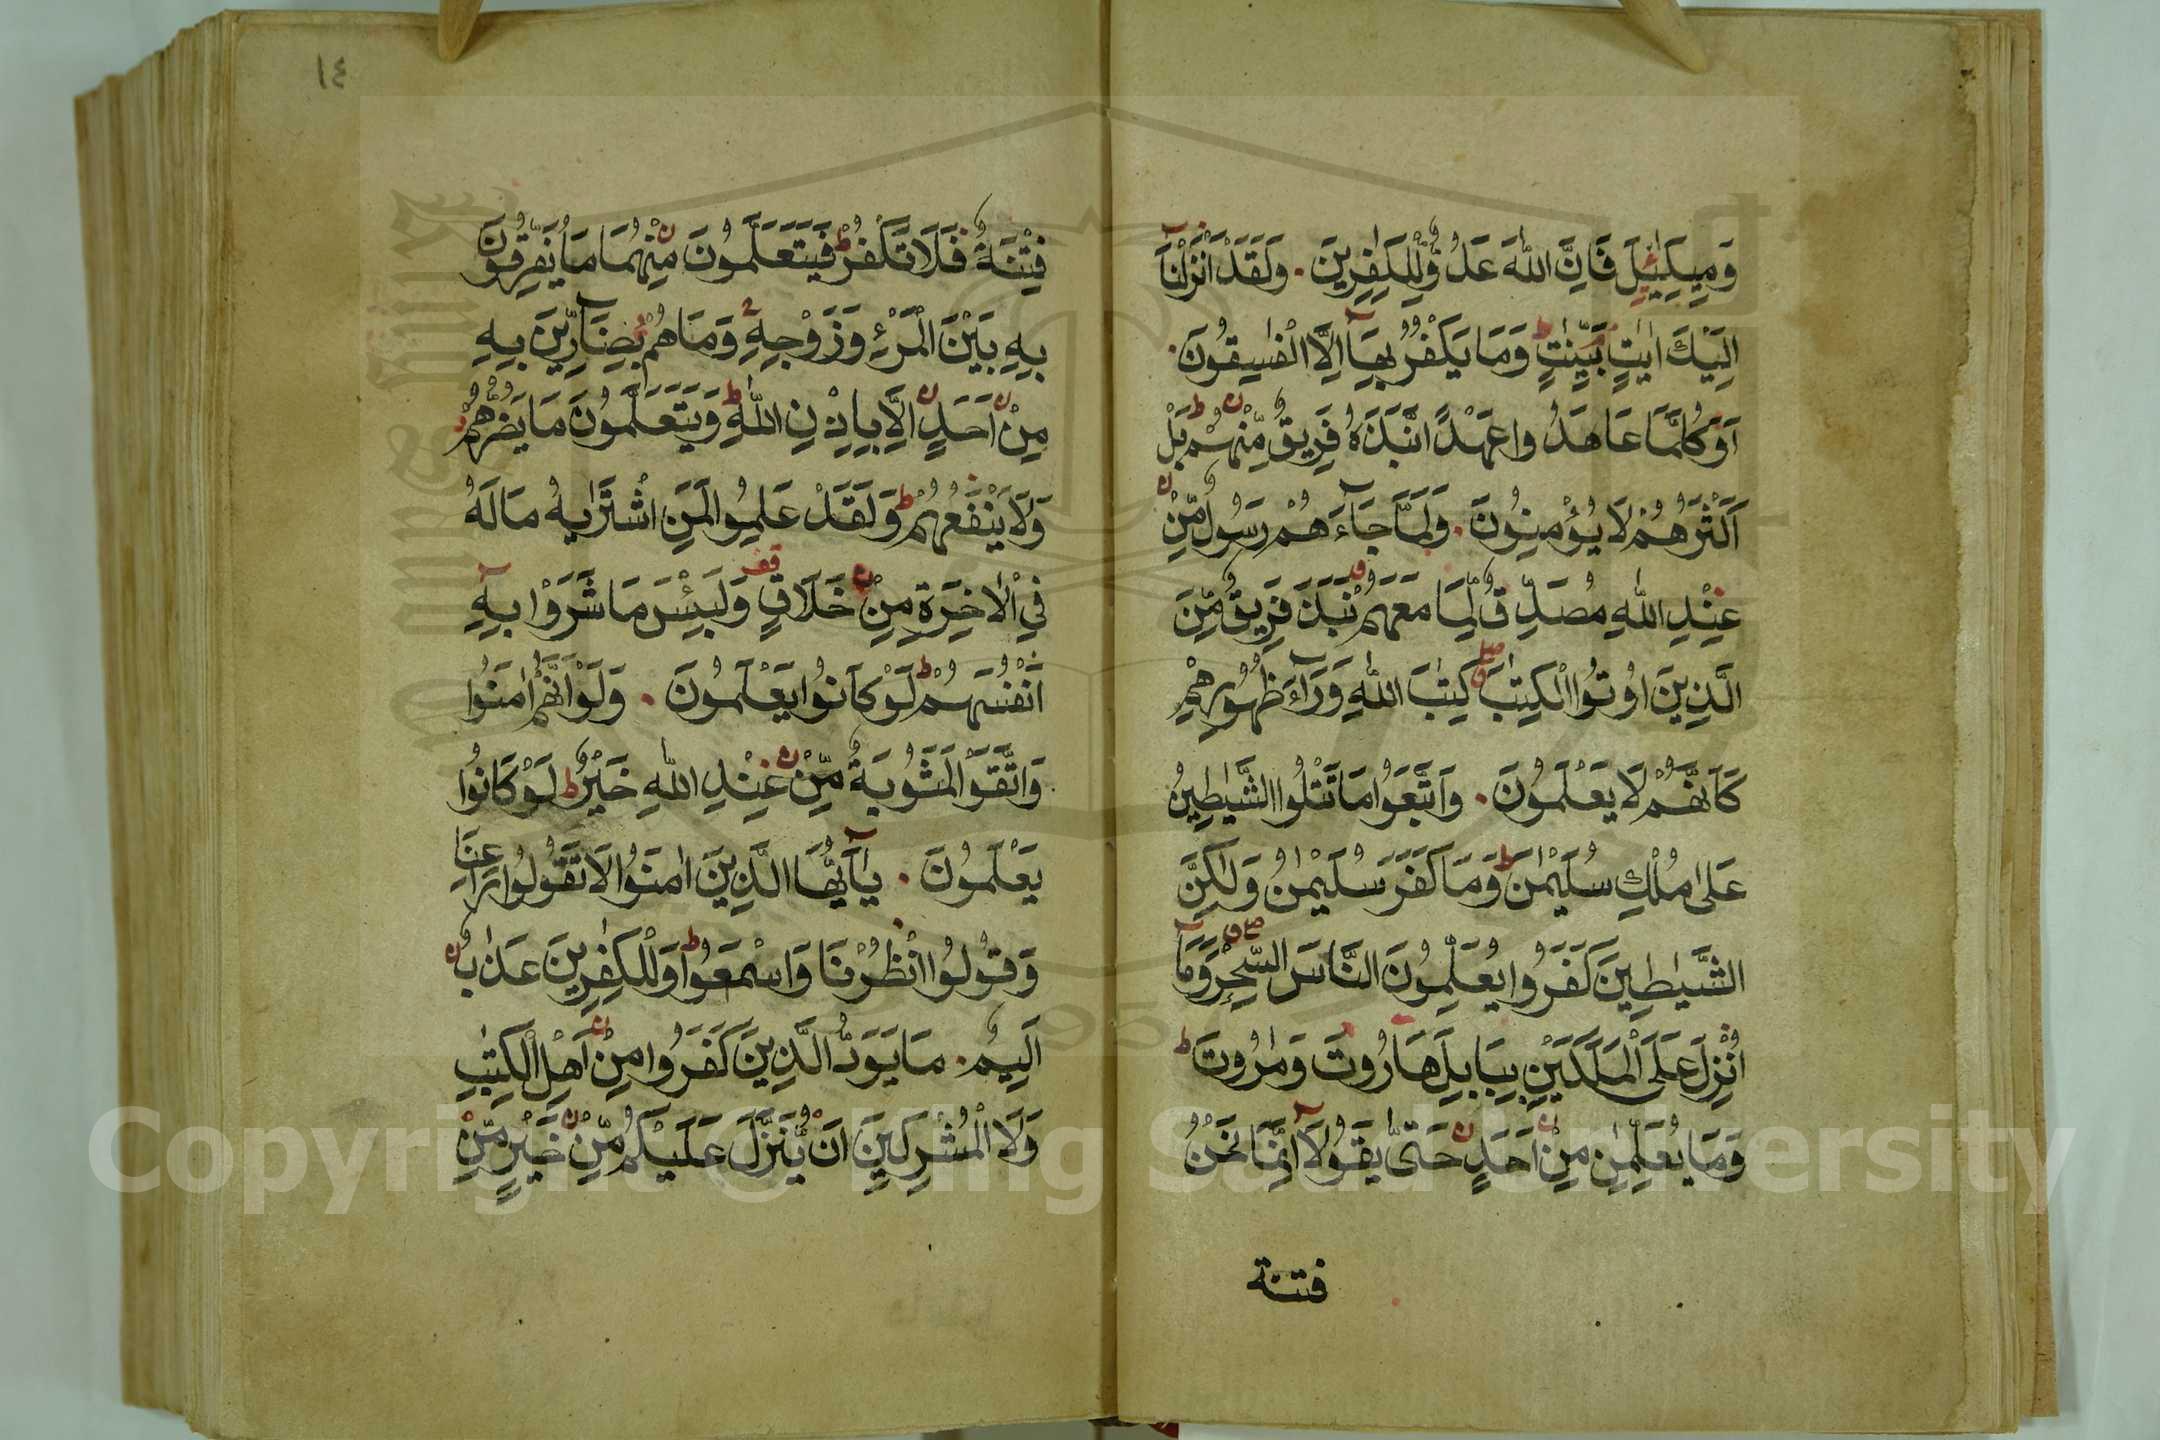 وَمِيكَٰئِلَ فَاِنَّ اللّٰهَ عَدُوٌّ لِلْكٰفِرِينَ . وَلَقَدْ اَنْزَلْنَآ
اِلَيْكَ اٰيٰتٍ بَيِّنٰتٍ ط وَمَا يَكْفُرُ بِهَآ اِلَّا الْفٰسِقُونَ .
اَوَكُلَّمَا عَاهَدُوا عَهْدًا نَبَذَهُ فَرِيقٌ مِّنْهُمْ ط بَلْ
اَكْثَرُهُمْ لَا يُؤْمِنُونَ . وَلَمَّا جَآءَهُمْ رَسُولٌ مِّنْ
عِنْدِ اللّٰهِ مُصَدِّقٌ لِّمَا مَعَهُمْ نَبَذَ فَرِيقٌ مِّنَ
الَّذِينَ اُوتُوا الْكِتٰبَ كِتٰبَ اللّٰهِ وَرَآءَ ظُهُورِهِمْ
كَاَنَّهُمْ لَا يَعْلَمُونَ . وَاتَّبَعُوا مَا تَتْلُوا الشَّيٰطِينُ
عَلٰى مُلْكِ سُلَيْمٰنَ ط وَمَا كَفَرَ سُلَيْمٰنُ وَلٰكِنَّ
الشَّيٰطِينَ كَفَرُوا يُعَلِّمُونَ النَّاسَ السِّحْرَ وَمَآ
اُنْزِلَ عَلَى الْمَلَكَيْنِ بِبَابِلَ هَارُوتَ وَمٰرُوتَ ط
وَمَا يُعَلِّمٰنِ مِنْ اَحَدٍ حَتّٰى يَقُولَآ اِنَّمَا نَحْنُ
فتنة
١٤
فِتْنَةٌ فَلَا تَكْفُرْ ط فَيَتَعَلَّمُونَ مِنْهُمَا مَا يُفَرِّقُونَ
بِهِ بَيْنَ الْمَرْءِ وَزَوْجِهِ وَمَا هُمْ بِضَآرِّينَ بِهِ
مِنْ اَحَدٍ اِلَّا بِاِذْنِ اللّٰهِ ط وَيَتَعَلَّمُونَ مَا يَضُرُّهُمْ
وَلَا يَنْفَعُهُمْ ط وَلَقَدْ عَلِمُوا لَمَنِ اشْتَرٰيهُ مَا لَهُ
فِي الْاٰخِرَةِ مِنْ خَلَاقٍ قف وَلَبِئْسَ مَا شَرَوْا بِهِٓ
اَنْفُسَهُمْ ط لَوْ كَانُوا يَعْلَمُونَ . وَلَوْ اَنَّهُمْ اٰمَنُوا
وَاتَّقَوْا لَمَثُوبَةٌ مِّنْ عِنْدِ اللّٰهِ خَيْرٌ ط لَوْ كَانُوا
يَعْلَمُونَ . يٰٓاَيُّهَا الَّذِينَ اٰمَنُوا لَا تَقُولُوا رَاعِنَا
وَقُولُوا انْظُرْنَا وَاسْمَعُوا ط وَلِلْكٰفِرِينَ عَذَابٌ
اَلِيمٌ . مَا يَوَدُّ الَّذِينَ كَفَرُوا مِنْ اَهْلِ الْكِتٰبِ
وَلَا الْمُشْرِكِينَ اَنْ يُّنَزَّلَ عَلَيْكُمْ مِّنْ خَيْرٍ مِّنْ
Copyright © King Saud University